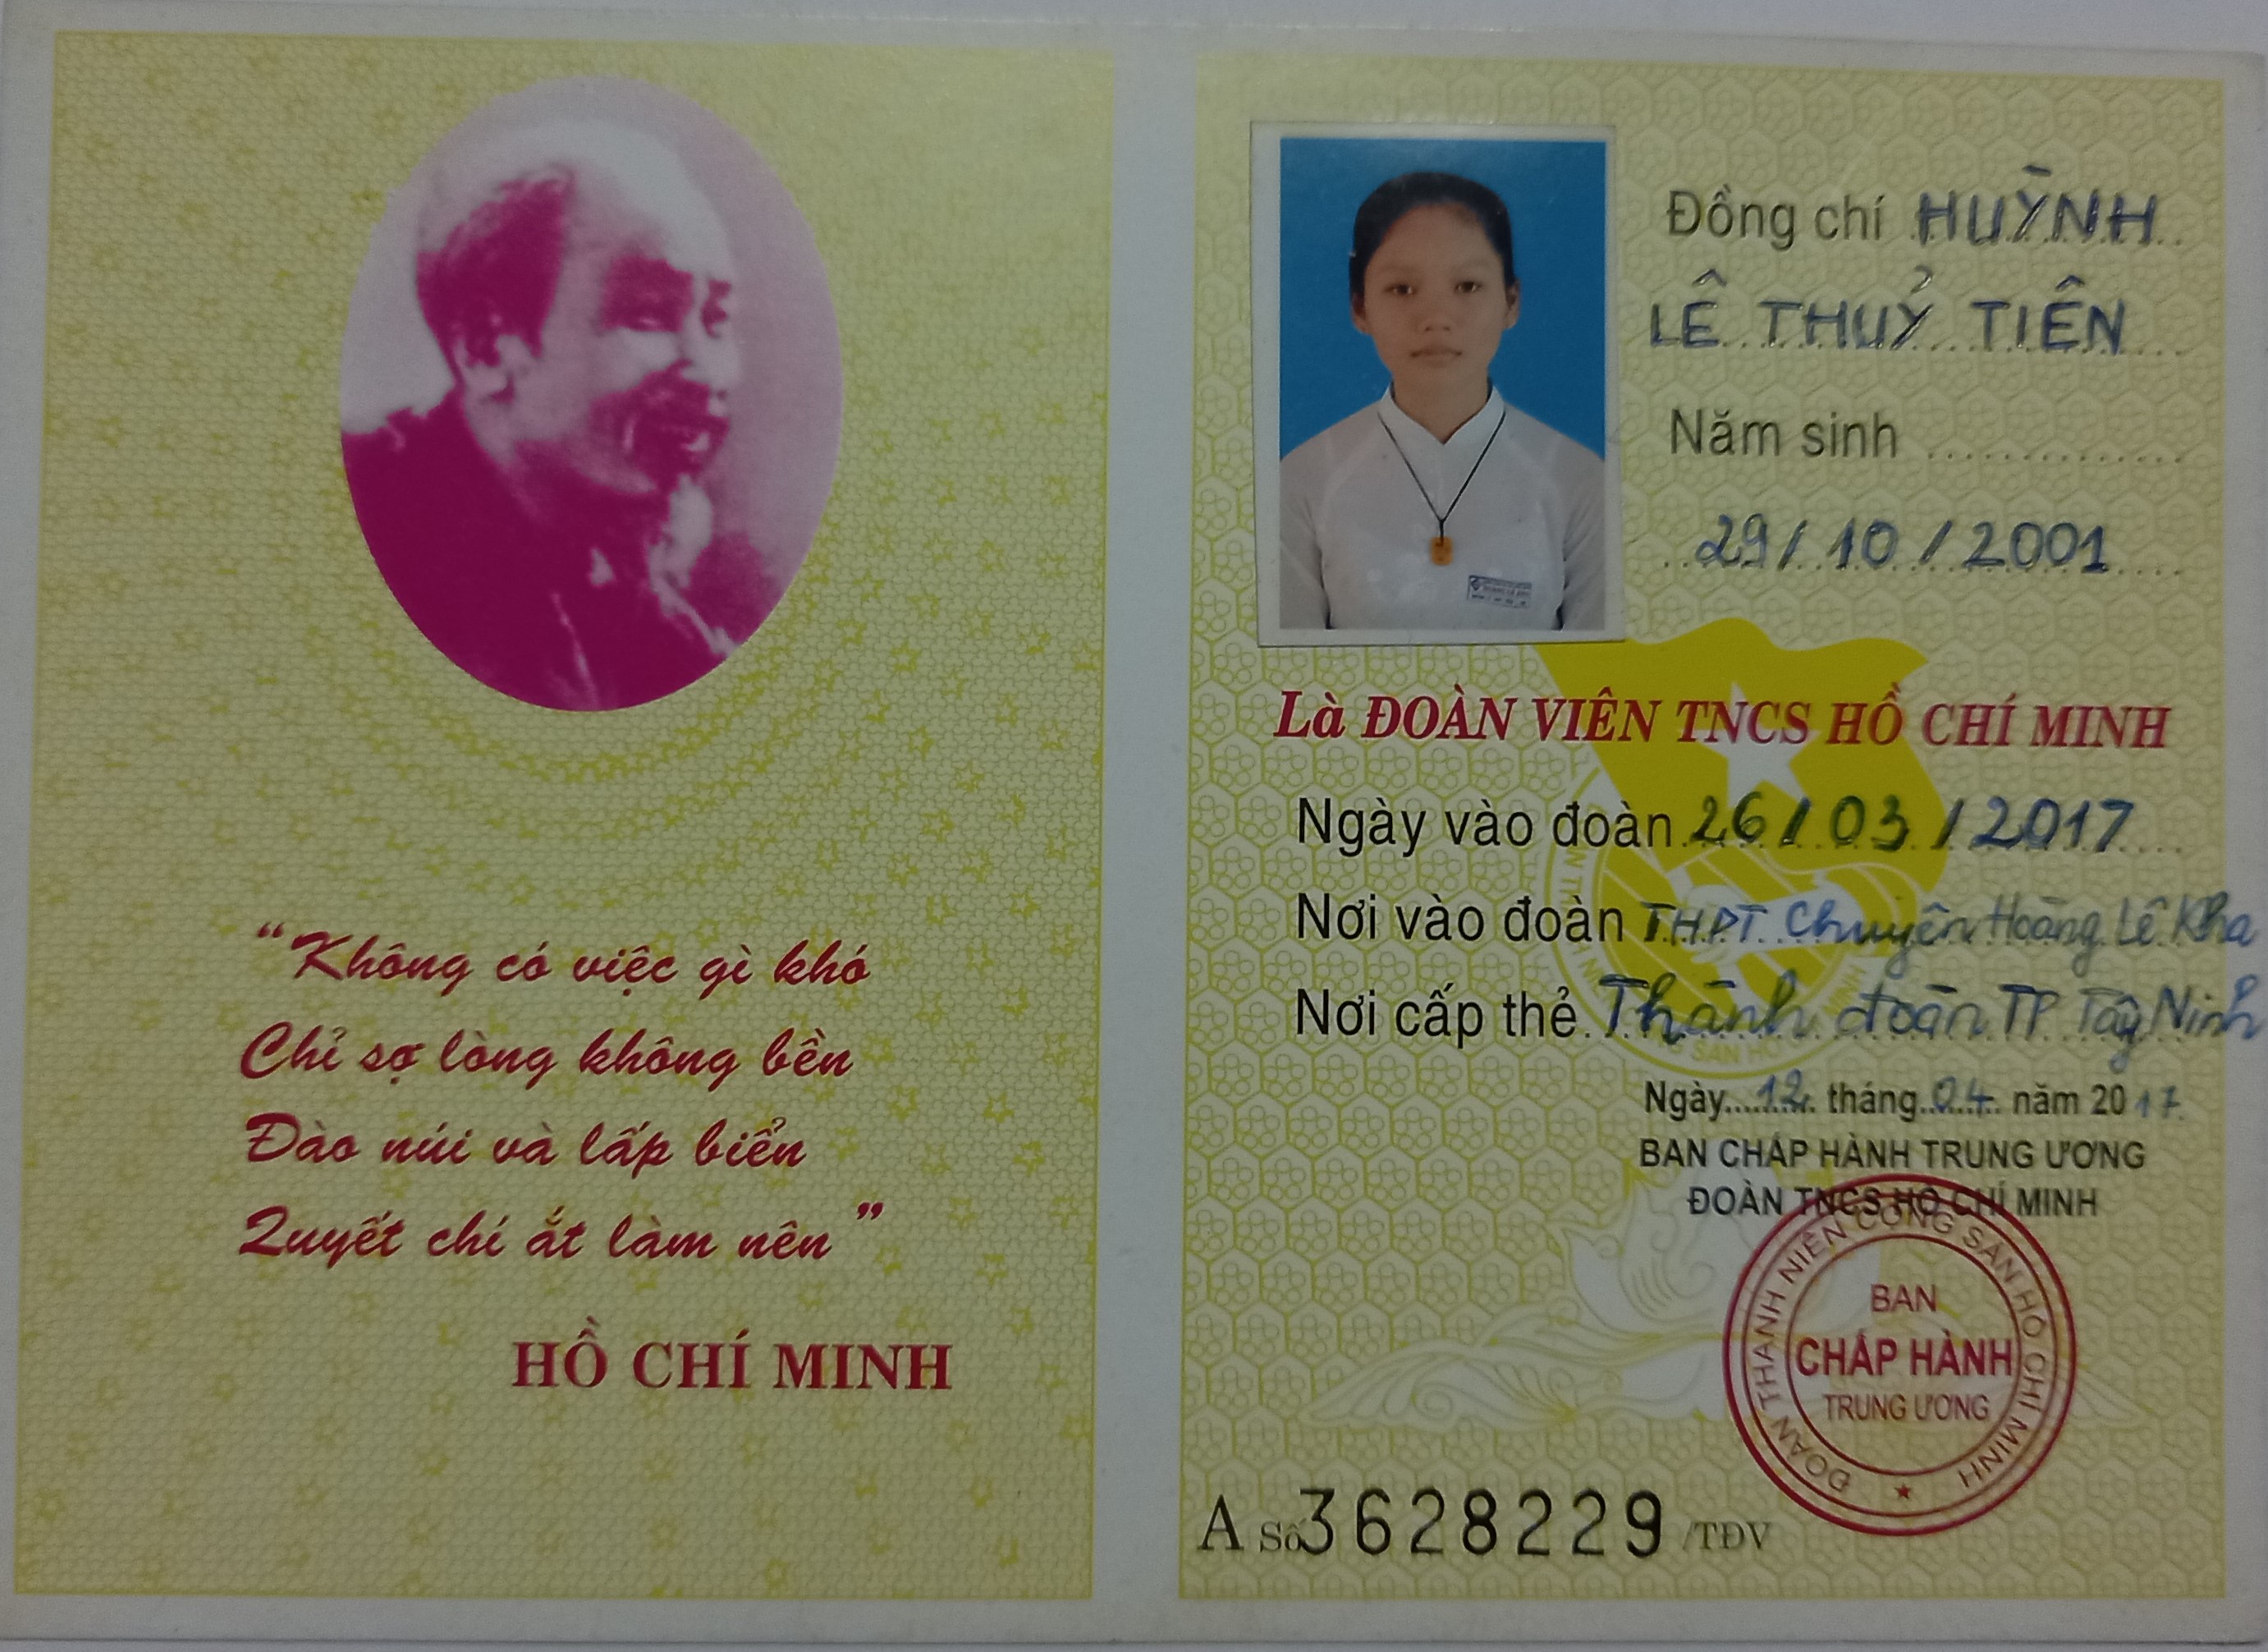 “Không có việc gì khó
Chỉ sợ lòng không bền
Đào núi và lấp biển
Quyết chí ắt làm nên”
HỒ CHÍ MINH
Đồng chí HUỲNH
LÊ THUỶ TIÊN
Năm sinh
29/10/2001
Là ĐOÀN VIÊN TNCS HỒ CHÍ MINH
Ngày vào đoàn 26/03/2017
Nơi vào đoàn THPT Chuyên Hoàng Lê Kha
Nơi cấp thẻ Thành đoàn TP Tây Ninh
Ngày 12 tháng 04 năm 2017
BAN CHẤP HÀNH TRUNG ƯƠNG
ĐOÀN TNCS HỒ CHÍ MINH
ĐOÀN THANH NIÊN CỘNG SẢN HỒ CHÍ MINH
BAN
CHẤP HÀNH
TRUNG ƯƠNG
A Số 3628229 /TĐV